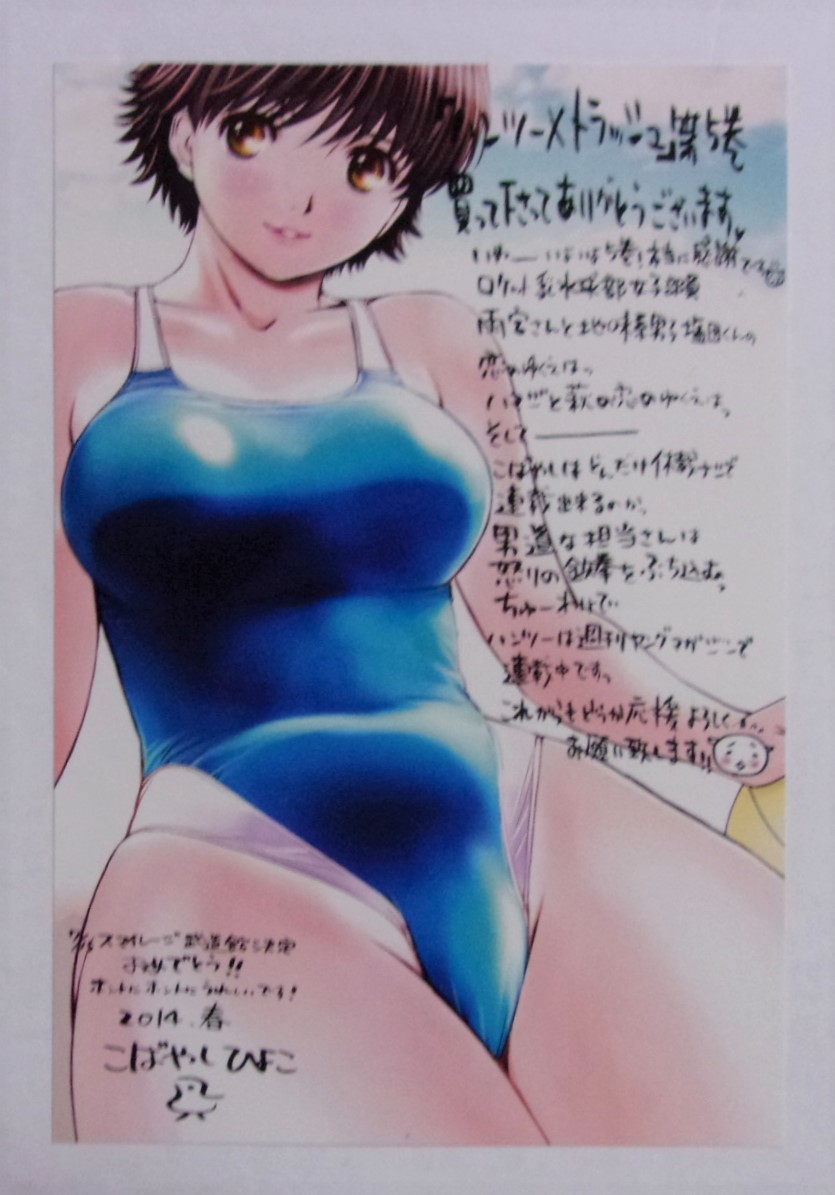 「ハンツー×トラッシュ」第5巻
買って下さってありがとうございます。
いやーいよいよ5巻!本当に感謝です
ロケット乳水球部女子部員
雨宮さんと土地の棒男子塩田くんの
恋のゆくえは。
ハマジと萩の恋のゆくえは。
そして――
こばやしはどんだけ休載ナシで
連載出来るのか。
男道な担当さんは
怒りの鉄拳をぶち込む。
ちゅーわけで
ハンツーは週刊ヤングマガジンで
連載中ですっ
これからもどうか応援よろしく
お願い致します!!
スマイレージ武道館決定
おめでとう!!
ホントにホントにうれしいです!
2014.春
こばやしひよこ